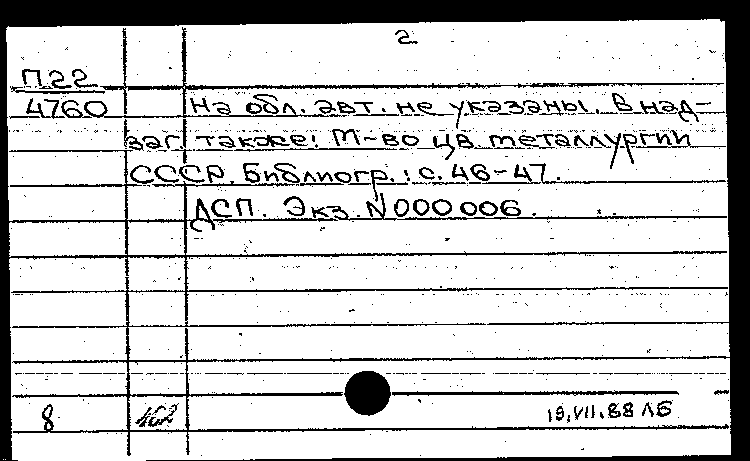 2
П22
4760 На обл. авт. не указаны. В над-
заг. также: М-во цв. металлургии
СССР. Библиогр.: с. 46-47.
ДСП. Экз. N000006.
8 462 19.VII.88 ЛБ